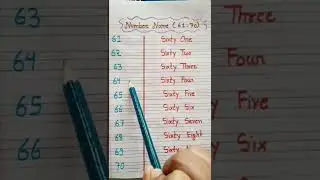 Number Name (61-70)
61 Sixty One
62 Sixty Two
63 Sixty Three
64 Sixty Four
65 Sixty Five
66 Sixty Six
67 Sixty Seven
68 Sixty Eight
69 Sixty
70
63
64
65
66
Three
Four
Five
Six